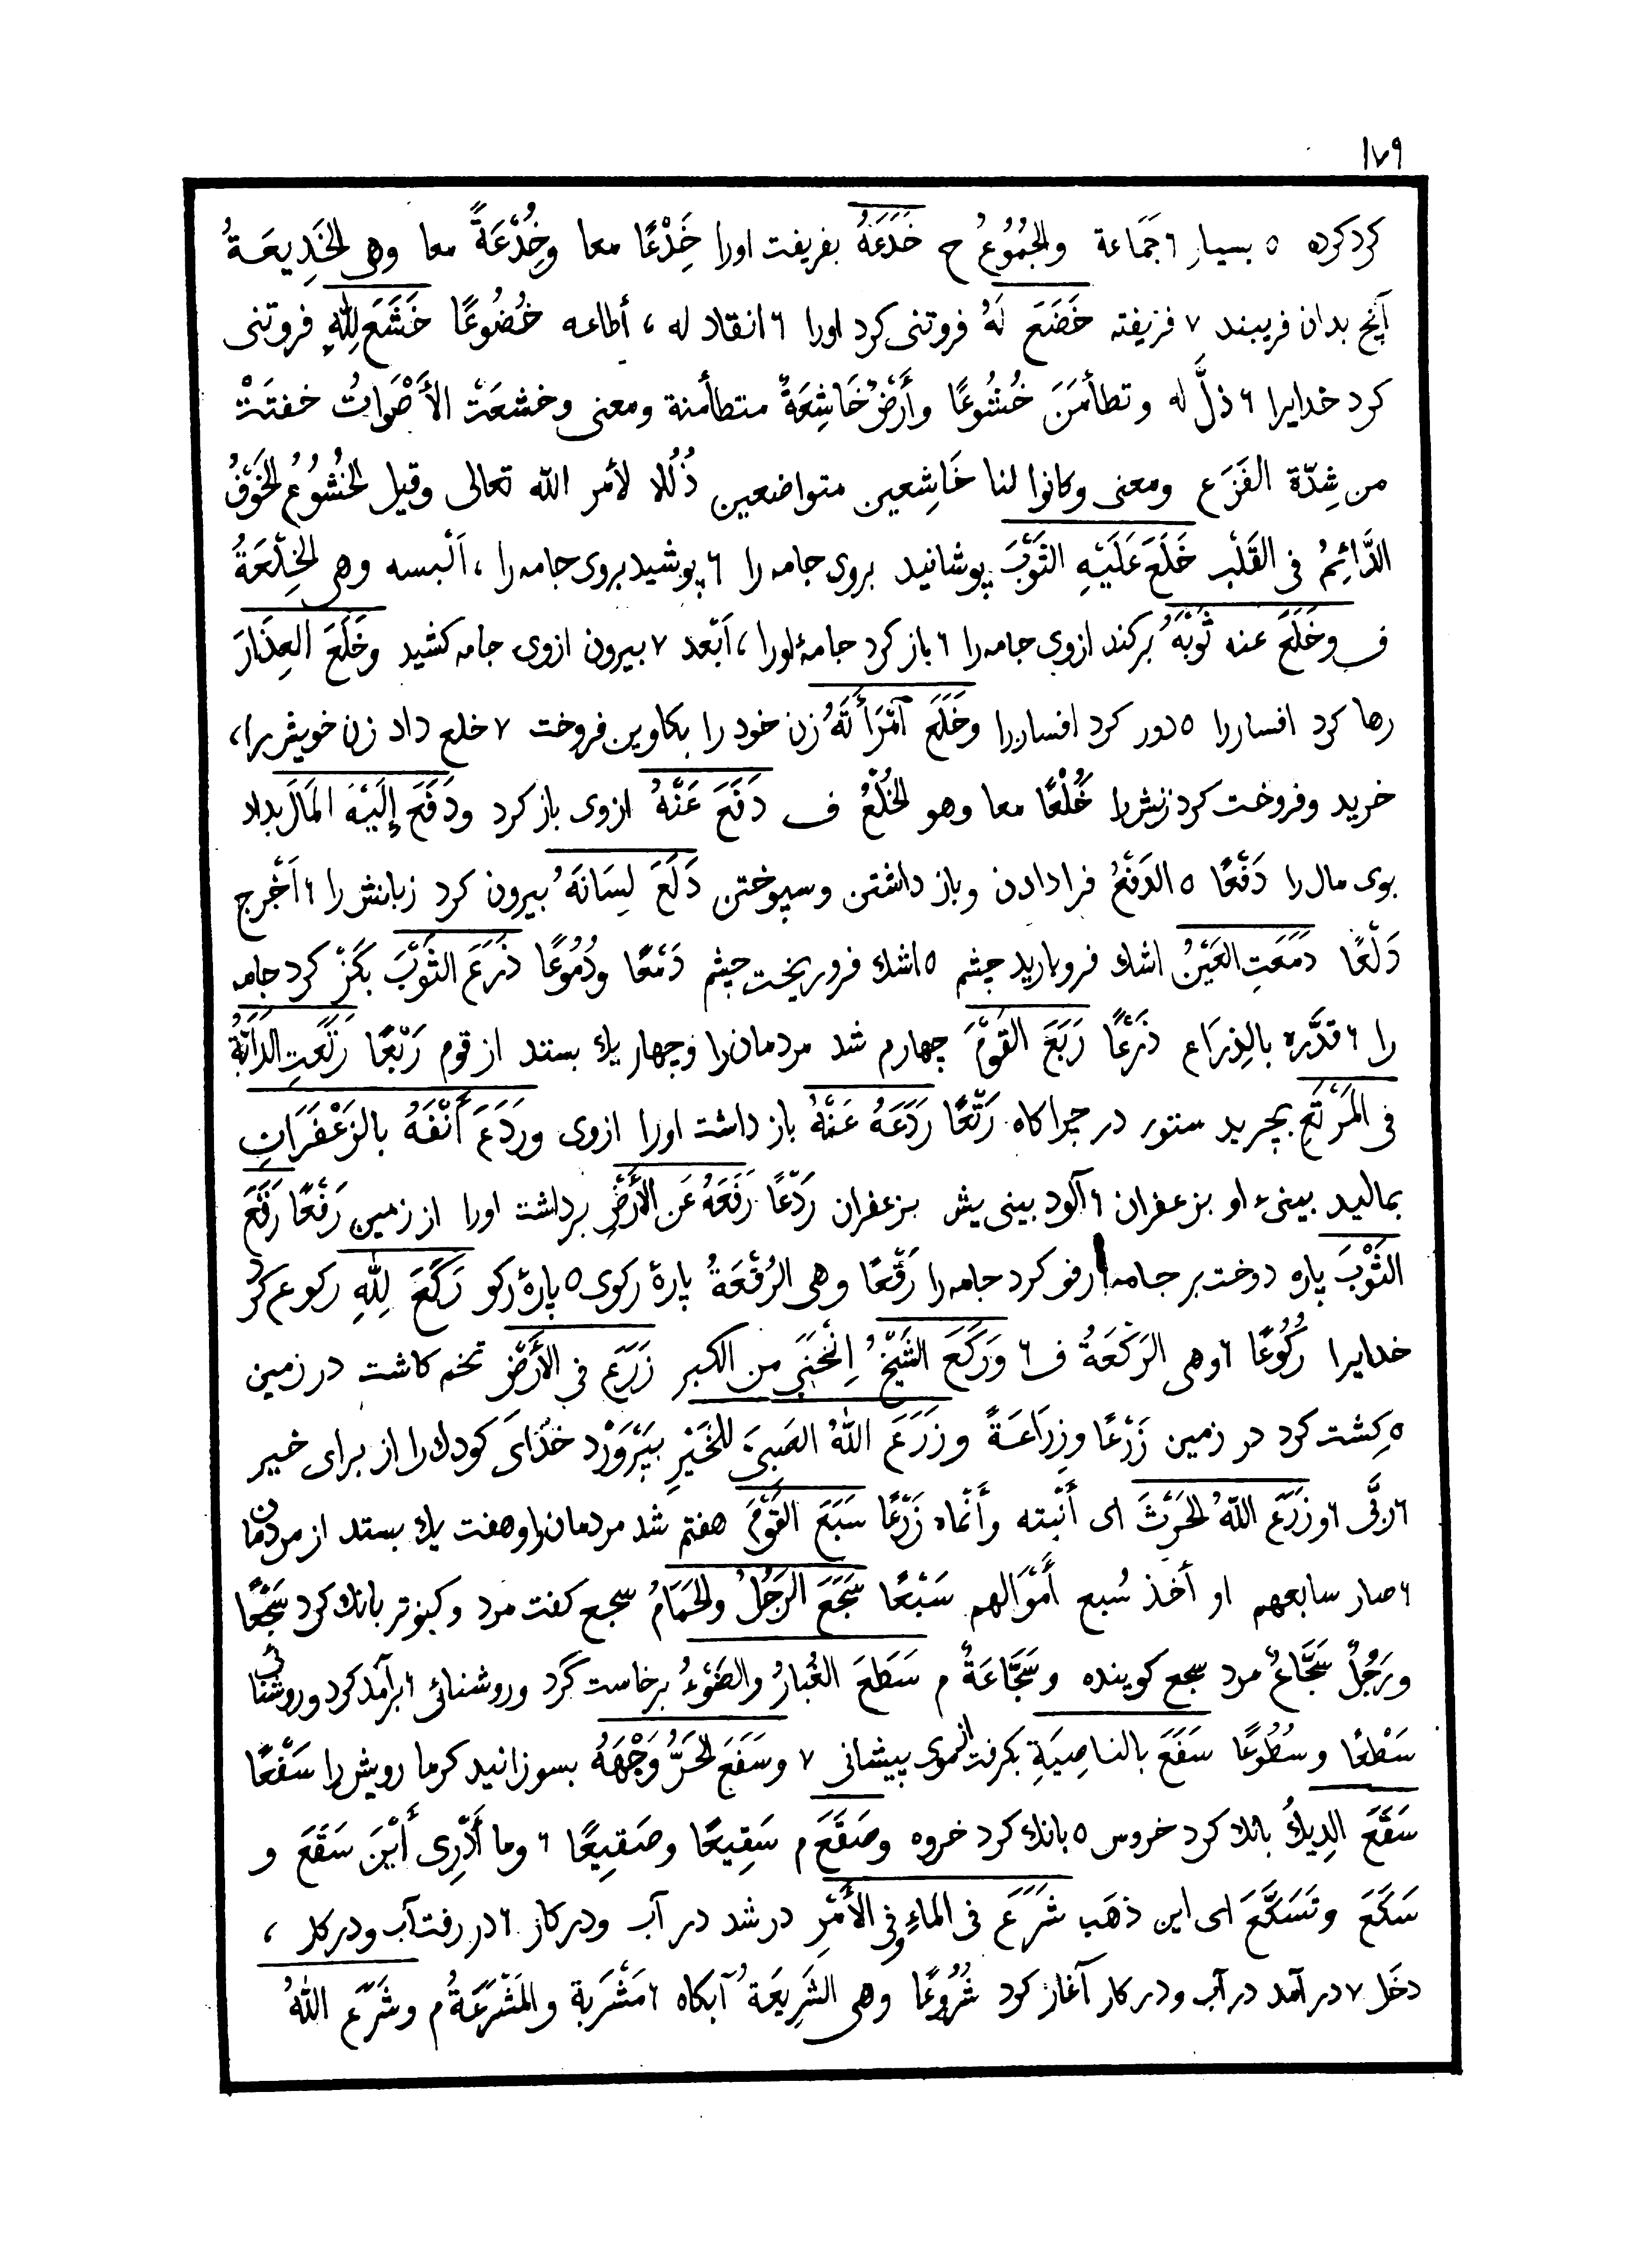 ١٧٩
کردکرده ٥ بسیار ٦ جَمَاعة والجُمُوُعُ ح خَدَعَهُ بفریفت اورا خَدْعًا معا وخُدْعَةً معا وهی الخَدِیعَةُ
آنچ بدان فریبند ٧ فریفته خَضَعَ لَهُ فروتنی کرد اورا ٦ انقاد له ، أطاعه خُضُوعًا خَشَعَ لِلّٰهِ فروتنی
کرد خدایرا ٦ ذلَّ له وتطأمَنَ خُشُوعًا وأَرْضٌ خَاشِعَةٌ متطأمنة ومعنی وخشعَتْ الأَصْوَاتُ خفتَتْ
من شِدّة الفَزَع ومعنی وکانوا لنا خَاشِعین متواضعین ذُلُلا لأمر الله تعالی وقیل الخُشُوُعُ الخَوْفُ
الدَّائِمُ فی القَلْب خَلَعَ عَلَیْهِ الثَوْبَ پوشانید بروی جامه را ٦ پوشید بروی جامه را ، اَلْبسه وهی الخِلْعَةُ
ف وخَلَعَ عنه ثَوْبَهُ برکند ازوی جامه را ٦ باز کرد جامهٔ اورا ، اَبْعد ٧ بیرون ازوی جامه کشید وخَلَعَ العِذَارَ
رها کرد افسار را ٥ دور کرد افسار را وخَلَعَ آمْرَأَتَهُ زن خود را بکاوین فروخت ٧ خلع داد زن خویش را ،
خرید وفروخت کرد زنش را خُلْعًا معا وهو الخُلْعُ ف دَفَعَ عَنْهُ ازوی باز کرد ودَفَعَ إِلَیْهِ المَالَ بداد
بوی مال را دَفْعًا ٥ الدَفْعُ فرا دادن وباز داشتن وسپوختن دَلَعَ لِسَانَهُ بیرون کرد زبانش را ٦ اَخْرج
دَلْعًا دَمَعَتِ العَیْنُ اشك فروبارید چشم ٥ اشك فروریخت چشم دَمْعًا ودُمُوعًا ذَرَعَ الثَوْبَ بکَزْ کرد جامه
را ٦ قدَّره بالذِرَاع ذَرْعًا رَبَعَ القَوْمَ چهارم شد مردمان را وچهار یك بستد از قوم رَبْعًا رَتَعَتِ الدَابَّةُ
فی المَرْتَعِ بچرید ستور در چراکاه رَتْعًا رَدَعَهُ عَنْهُ باز داشت اورا ازوی ورَدَعَ أَنْفَهُ بالزَعْفَرَانِ
بمالید بینیٔ او بزعفران ٦ آلود بینی یش بزعفران رَدْعًا رَفَعَهُ عَن الأَرْضِ برداشت اورا از زمین رَفْعًا رَقَعَ
الثَوْبَ پاره دوخت بر جامه رفو کرد جامه را رَقْعًا وهی الرُقْعَةُ پارهٔ رکوی ٥ پارهٔ رکو رَکَعَ لِلّٰهِ رکوع کرد
خدایرا رُکُوعًا ٦ وهی الرَکْعَةُ ف ٦ ورَکَعَ الشَیْخُ اِنْحَنَی من الکبر زَرَعَ فی الأَرْضِ تخم کاشت در زمین
٥ کِشت کرد در زمین زَرْعًا وزِرَاعَةً وزَرَعَ اللّٰهُ الصَبِیَّ للخَیْرِ بپَرْوَرْد خدَای کودك را از برای خیر
٦ ربَّی ٦ وزَرَعَ اللّٰهُ الحَرْثَ ای أَنْبته وأَنْماه زَرْعًا سَبَعَ القَوْمَ هفتم شد مردمان را وهفت یك بستد از مردمان
٦ صار سابعهم او أخذ سُبع أَمْوَالهم سَبْعًا سَجَعَ الرَجُلُ والحَمَامُ سجع کفت مرد وکبوتر بانك کرد سَجْعًا
ورَجُلٌ سَجَّاعٌ مرد سجع کوینده وسَجَّاعَةٌ م سَطَعَ الغُبَارُ والضَوْءُ برخاست گرد وروشنائی ٦ برآمد کرد وروشنائی
سَطْعًا وسُطُوعًا سَفَعَ بالناصِیَةِ بکرفت ازموی پیشانی ٧ وسَفَعَ الحَرُّ وَجْهَهُ بسوزانید کرما رویش را سَفْعًا
سَقَعَ الدِیكُ بانك کرد خروس ٥ بانك کرد خروه وصَقَعَ م سَقِیعًا وصَقِیعًا ٦ وما أَدْرِی أَیْنَ سَقَعَ و
سَکَعَ وتَسَکَّعَ ای این ذهَب شَرَعَ فی المَاءِ وفِی الأَمْرِ در شد در آب ودر کار ٦ در رفت آب ودر کار ،
دخَل ٧ در آمد در آب ودر کار آغاز کرد شُرُوعًا وهی الشَرِیعَةُ آبکاه ٦ مَشْرَبة والمَشْرَعَةُ م وشَرَعَ اللّٰهُ